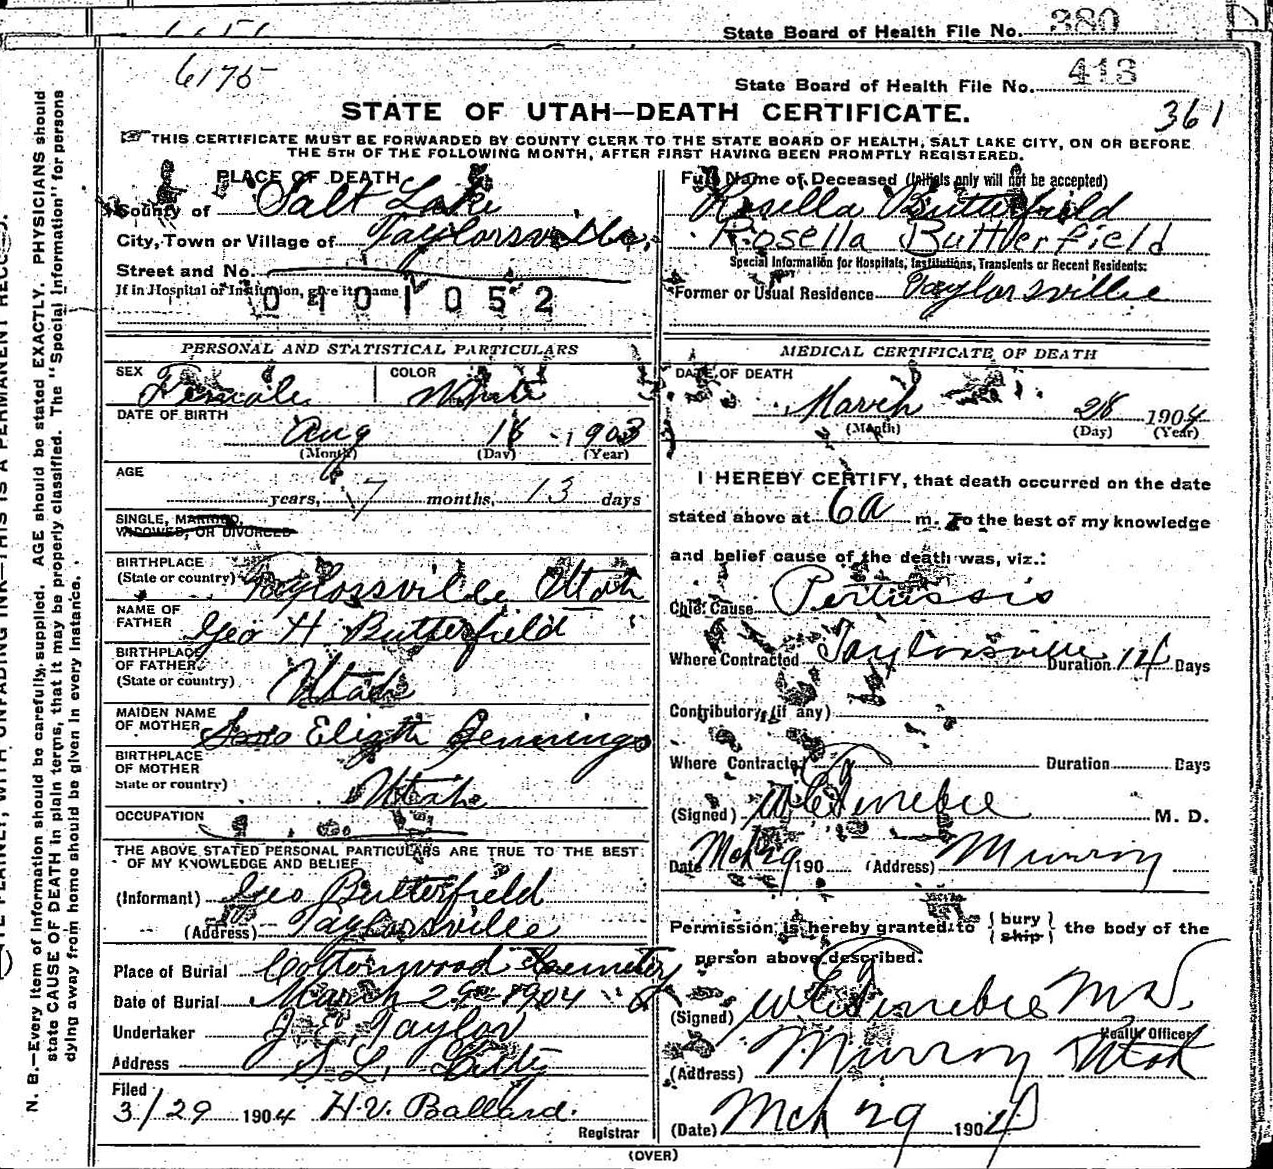 State Board of Health File No. 380
6175
State Board of Health File No. 413
STATE OF UTAH—DEATH CERTIFICATE.
361
THIS CERTIFICATE MUST BE FORWARDED BY COUNTY CLERK TO THE STATE BOARD OF HEALTH, SALT LAKE CITY, ON OR BEFORE
THE 5TH OF THE FOLLOWING MONTH, AFTER FIRST HAVING BEEN PROMPTLY REGISTERED.
PLACE OF DEATH
County of Salt Lake
City, Town or Village of Taylorsville.
Street and No.
If in Hospital or Institution, give its name
0101052
Full Name of Deceased (Initials only will not be accepted)
Rosella Butterfield
Rosella Butterfield
Special Information for Hospitals, Institutions, Transients or Recent Residents:
Former or Usual Residence Taylorsville
PERSONAL AND STATISTICAL PARTICULARS
SEX Female COLOR White
DATE OF BIRTH
Aug 18 1903
(Month) (Day) (Year)
AGE
years, 7 months, 13 days
SINGLE, MARRIED,
WIDOWED, OR DIVORCED
BIRTHPLACE
(State or country) Taylorsville Utah
NAME OF
FATHER Geo H Butterfield
BIRTHPLACE
OF FATHER
(State or country) Utah
MAIDEN NAME
OF MOTHER Elizth Jennings
BIRTHPLACE
OF MOTHER
State or country) Utah
OCCUPATION
THE ABOVE STATED PERSONAL PARTICULARS ARE TRUE TO THE BEST
OF MY KNOWLEDGE AND BELIEF
(Informant) Geo Butterfield
(Address) Taylorsville
Place of Burial Cottonwood Cemetery
Date of Burial March 29 1904
Undertaker J. E. Taylor
Address S. L. City
Filed
3/29 1904 H. V. Ballard.
Registrar
MEDICAL CERTIFICATE OF DEATH
DATE OF DEATH
March 28 1904
(Month) (Day) (Year)
I HEREBY CERTIFY, that death occurred on the date
stated above at 6 a m. To the best of my knowledge
and belief cause of the death was, viz.:
Chief Cause Pertussis
Where Contracted Taylorsville Duration 14 Days
Contributory (if any)
Where Contracted Duration Days
(Signed) M. D.
Date Mch 29 190 (Address) Murray
Permission is hereby granted to { bury ship } the body of the
person above described.
(Signed) M D
Health Officer
(Address) Murray Utah
(Date) Mch 29 1904
(OVER)
N. B.—Every item of information should be carefully supplied. AGE should be stated EXACTLY. PHYSICIANS should
state CAUSE OF DEATH in plain terms, that it may be properly classified. The "Special Information" for persons
dying away from home should be given in every instance.